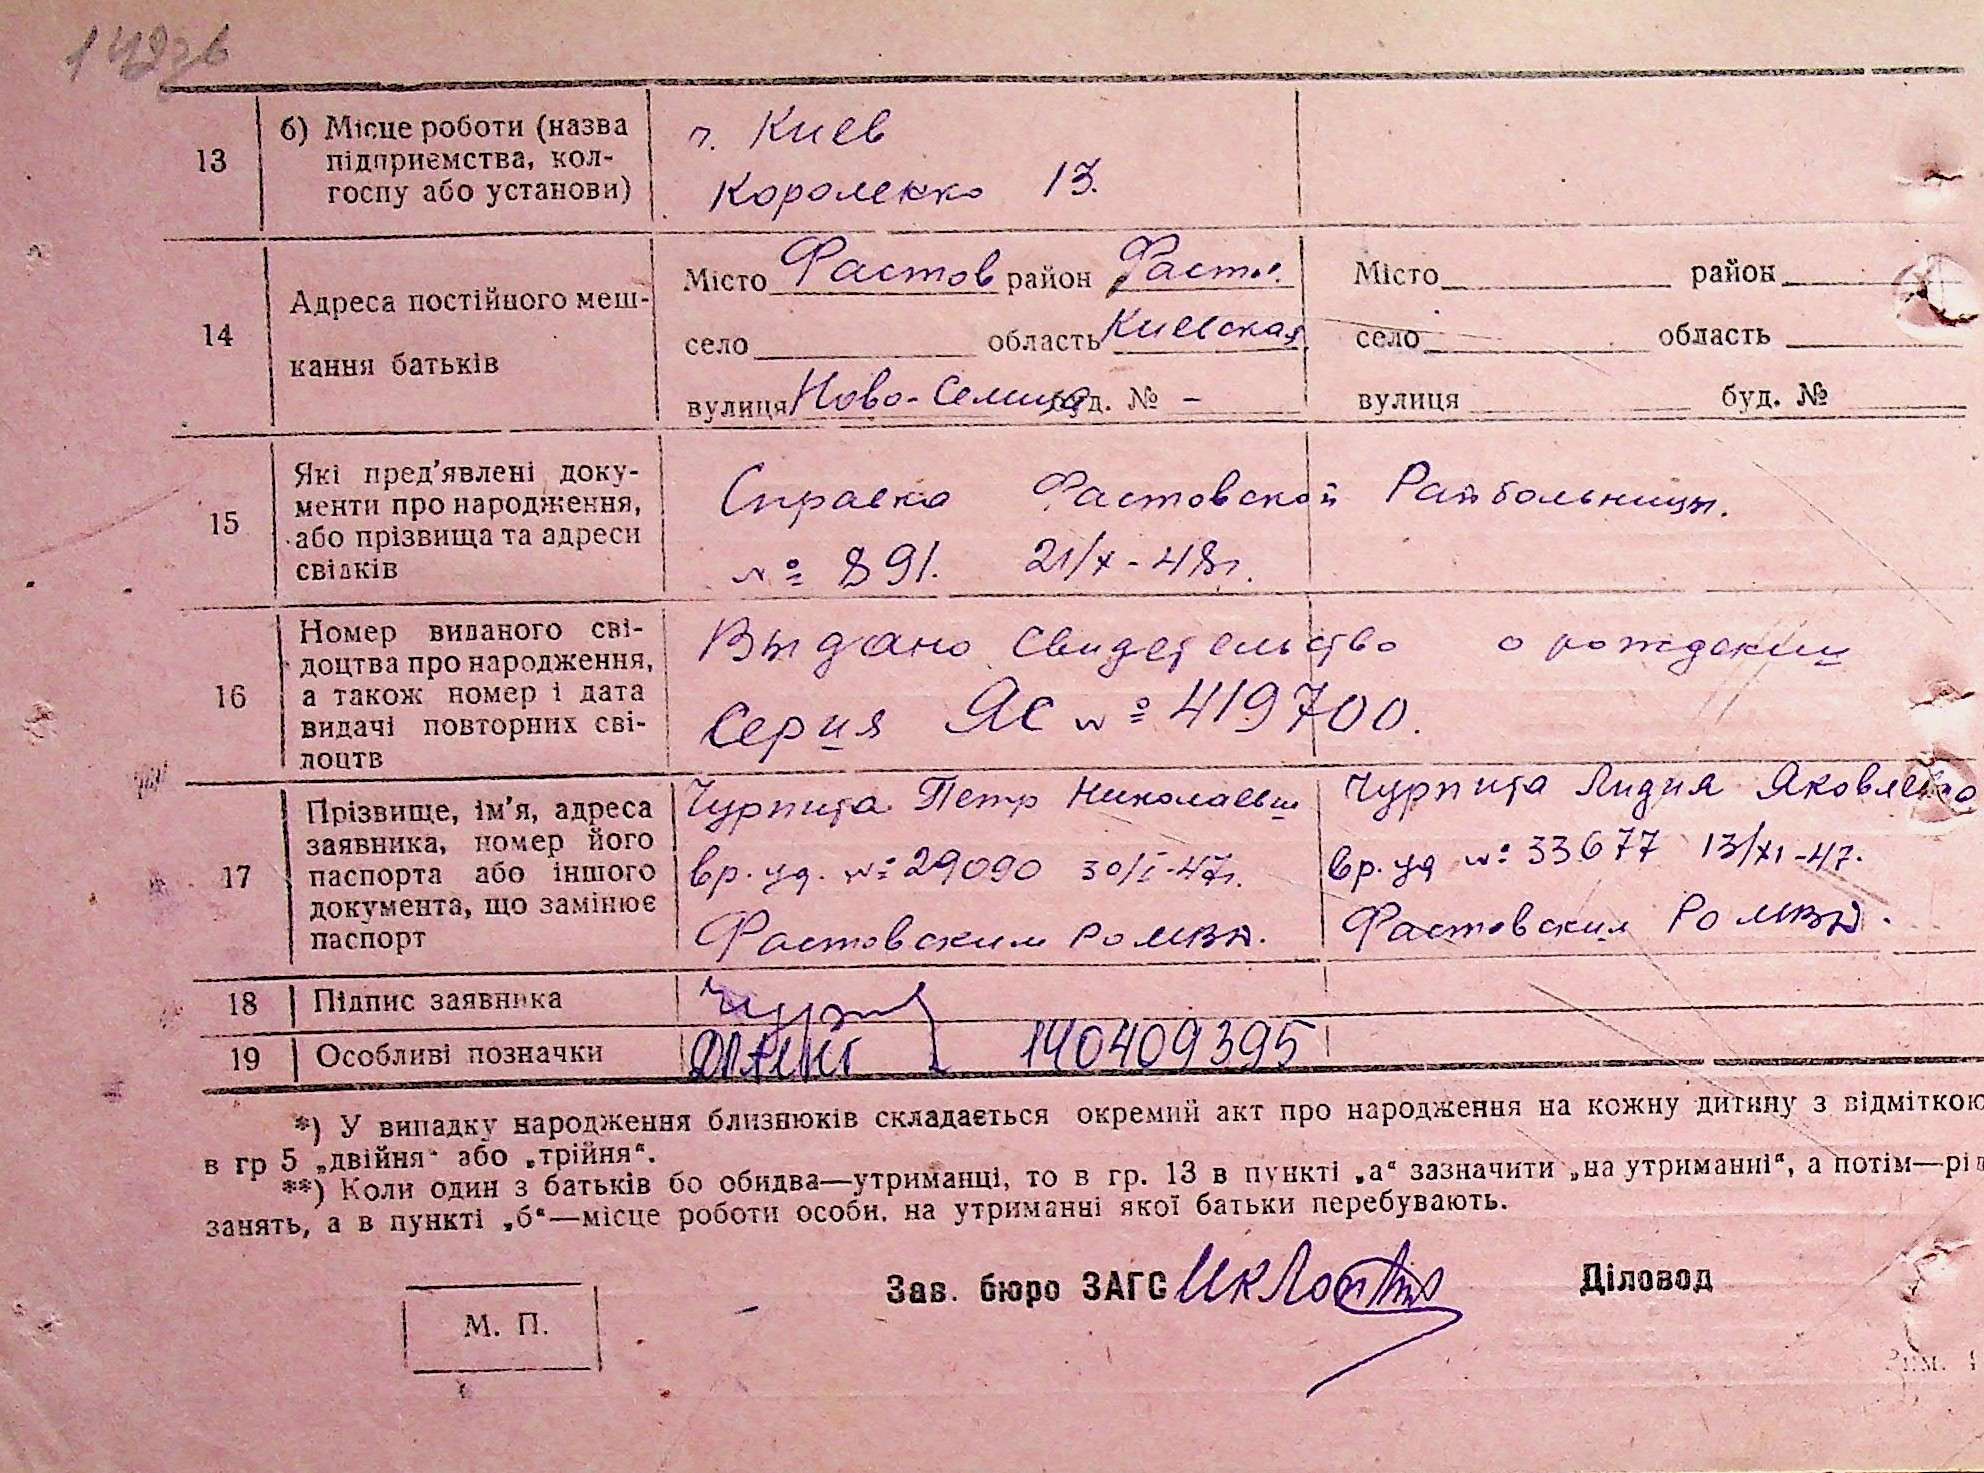 13 б) Місце роботи (назва підприємства, кол-
госпу або установи)
г. Киев
Короленко 13.
14 Адреса постійного меш-
кання батьків
Місто Фастов район Фаст.
село область Киевская
вулиця Ново- буд. № -
Місто район
село область
вулиця буд. №
15 Які пред'явлені доку-
менти про народження,
або прізвища та адреси
свідків
Справка Фастовской Райбольницы.
№ 891. 21/X-48г.
16 Номер виданого сві-
доцтва про народження,
а також номер і дата
видачі повторних сві-
доцтв
Выдано Свидетельство о рождении
Серия ЯС № 419700.
17 Прізвище, ім'я, адреса
заявника, номер його
паспорта або іншого
документа, що замінює
паспорт
Чурпита Петр Николаевич
вр. уд. № 29090 30/I-47г.
Фастовским РО МВД.
Чурпита Лидия Яковлевна
вр. уд № 33677 13/XI-47.
Фастовским РО МВД.
18 Підпис заявника
19 Особливі позначки
140409395
*) У випадку народження близнюків складається окремий акт про народження на кожну дитину з відміткою
в гр 5 „двійня“ або „трійня“.
**) Коли один з батьків бо обидва—утриманці, то в гр. 13 в пункті „а“ зазначити „на утриманні“, а потім—рід
занять, а в пункті „б“—місце роботи особи, на утриманні якої батьки перебувають.
Зав. бюро ЗАГС Діловод
М. П.